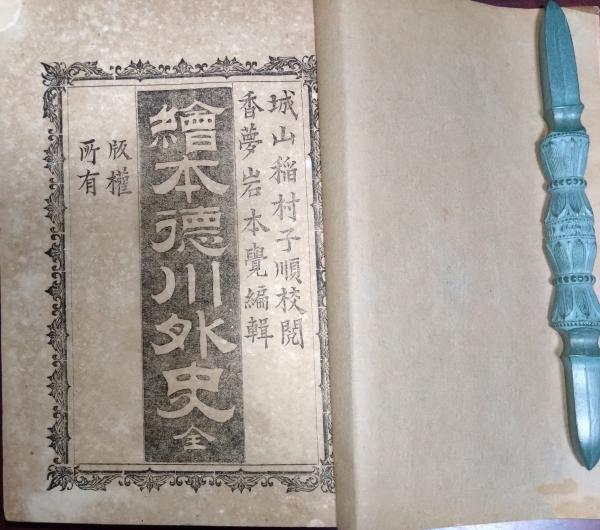 城山稲村子順校閲
香夢岩本覺編輯
繪本德川外史全
版權
所有